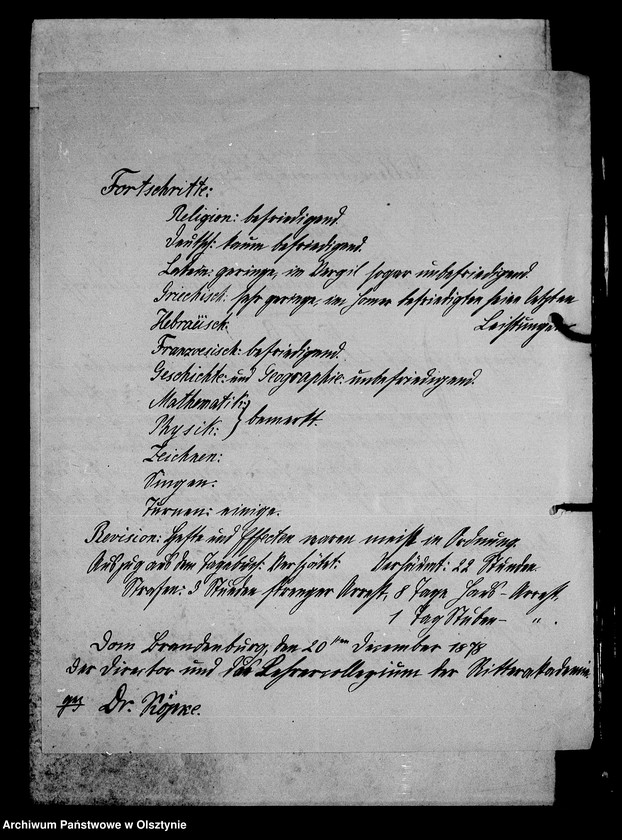 Fortschritte:
Religion: befriedigend.
Deutsch: kaum befriedigend.
Latein: geringe, im Vergil sogar unbefriedigend.
Griechisch: sehr geringe, im Homer befriedigten seine letzten
Leistungen.
Hebräisch:
Franzoesisch: befriedigend.
Geschichte: und Geographie: unbefriedigend.
Mathematik: } bemerkt.
Physik:
Zeichnen:
Singen:
Turnen: einige.
Revision: Hefte und Effecten waren meist in Ordnung.
Auszug aus dem Tagebuch: Verspätet: Versäumt: 22 Stunden.
Strafen: 3 Stunden strenger Arrest, 8 Tage Haus-Arrest.
1 Tag Stuben- " .
Dom Brandenburg, den 20ten December 1878
Der Director und das Lehrercollegium der Ritterakademie
gez Dr. Köpke.
Archiwum Państwowe w Olsztynie